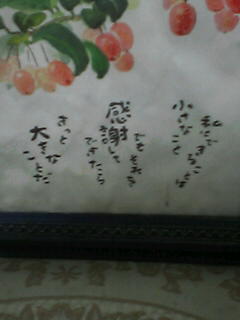 私にできることは
小さなこと
でもそれを
感謝して
できたら
きっと
大きな
ことだ